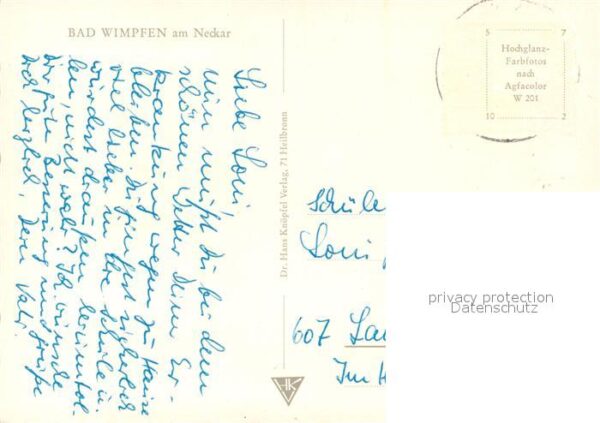 BAD WIMPFEN am Neckar
Liebe Loni,
nun mußt Du bei dem
schönen Wetter Deiner Er-
krankung wegen zu Hause
bleiben. Du fingst sicherlich
viel lieber in die Schule u.
würdest draußen herumtol-
len, nicht wahr? Ich wünsche
Dir gute Besserung und grüße
Dich herzlich, Dein
Dr. Hans Knöpfel Verlag, 71 Heilbronn
HK
5 7
Hochglanz-
Farbfotos
nach
Agfacolor
W 201
10 2
Schüle
Loni
607 Lan
Im H
privacy protection
Datenschutz